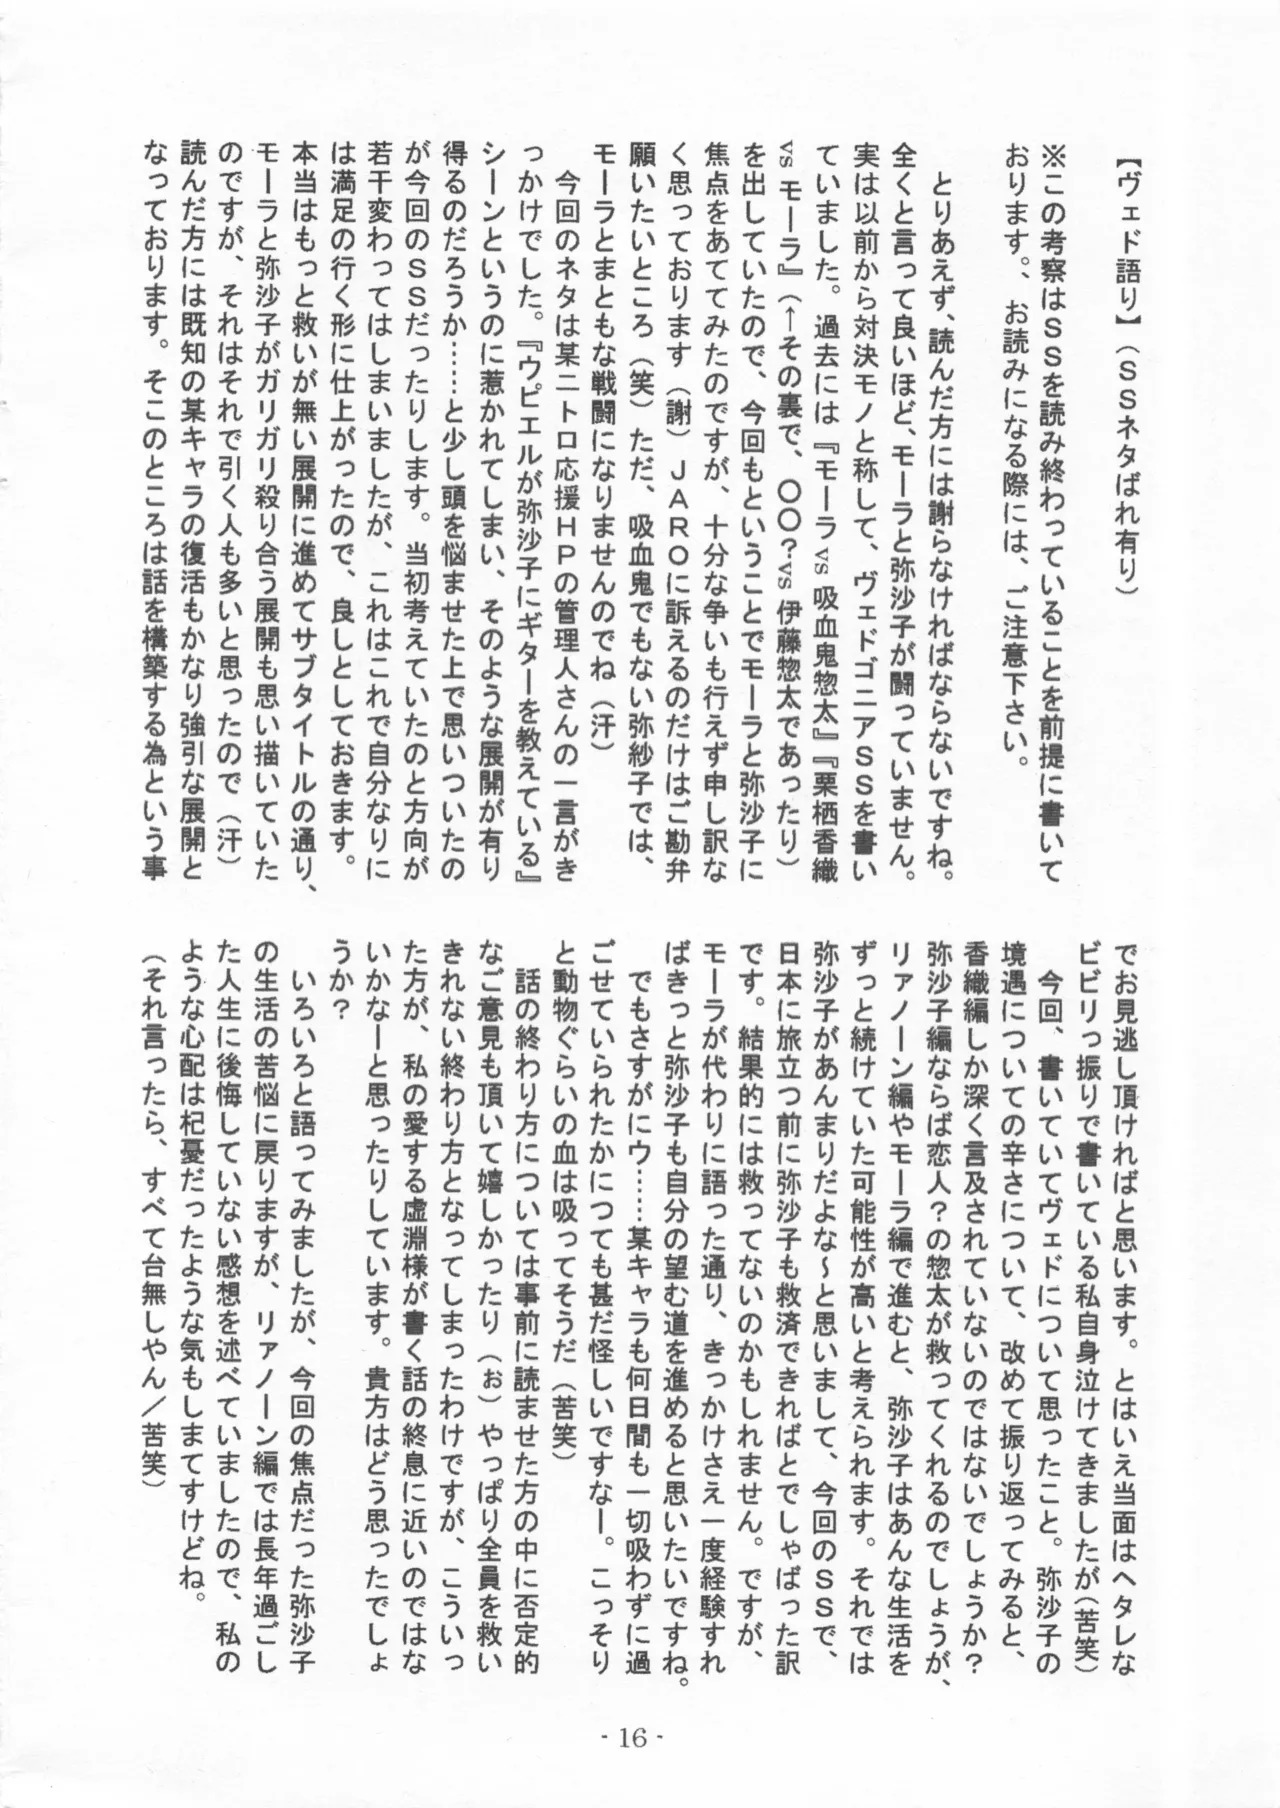 【ヴェド語り】（ＳＳネタばれ有り）
※この考察はＳＳを読み終わっていることを前提に書いて
おります。、お読みになる際には、ご注意下さい。
とりあえず、読んだ方には謝らなければならないですね。
全くと言って良いほど、モーラと弥沙子が闘っていません。
実は以前から対決モノと称して、ヴェドゴニアＳＳを書い
ていました。過去には『モーラ vs 吸血鬼惣太』『栗栖香織
vs モーラ』（←その裏で、〇〇？vs 伊藤惣太であったり）
を出していたので、今回もということでモーラと弥沙子に
焦点をあててみたのですが、十分な争いも行えず申し訳な
く思っております（謝）ＪＡＲＯに訴えるのだけはご勘弁
願いたいところ（笑）ただ、吸血鬼でもない弥紗子では、
モーラとまともな戦闘になりませんのでね（汗）
今回のネタは某ニトロ応援ＨＰの管理人さんの一言がき
っかけでした。『ウピエルが弥沙子にギターを教えている』
シーンというのに惹かれてしまい、そのような展開が有り
得るのだろうか……と少し頭を悩ませた上で思いついたの
が今回のＳＳだったりします。当初考えていたのと方向が
若干変わってはしまいましたが、これはこれで自分なりに
は満足の行く形に仕上がったので、良しとしておきます。
本当はもっと救いが無い展開に進めてサブタイトルの通り、
モーラと弥沙子がガリガリ殺り合う展開も思い描いていた
のですが、それはそれで引く人も多いと思ったので（汗）
読んだ方には既知の某キャラの復活もかなり強引な展開と
なっております。そこのところは話を構築する為という事
でお見逃し頂ければと思います。とはいえ当面はヘタレな
ビビリっ振りで書いている私自身泣けてきましたが（苦笑）
今回、書いていてヴェドについて思ったこと。弥沙子の
境遇についての辛さについて、改めて振り返ってみると、
香織編しか深く言及されていないのではないでしょうか？
弥沙子編ならば恋人？の惣太が救ってくれるのでしょうが、
リァノーン編やモーラ編で進むと、弥沙子はあんな生活を
ずっと続けていた可能性が高いと考えられます。それでは
弥沙子があんまりだよな～と思いまして、今回のＳＳで、
日本に旅立つ前に弥沙子も救済できればとでしゃばった訳
です。結果的には救ってないのかもしれません。ですが、
モーラが代わりに語った通り、きっかけさえ一度経験すれ
ばきっと弥沙子も自分の望む道を進めると思いたいですね。
でもさすがにウ……某キャラも何日間も一切吸わずに過
ごせていられたかにつても甚だ怪しいですなー。こっそり
と動物ぐらいの血は吸ってそうだ（苦笑）
話の終わり方については事前に読ませた方の中に否定的
なご意見も頂いて嬉しかったり（ぉ）やっぱり全員を救い
きれない終わり方となってしまったわけですが、こういっ
た方が、私の愛する虚淵様が書く話の終息に近いのではな
いかなーと思ったりしています。貴方はどう思ったでしょ
うか？
いろいろと語ってみましたが、今回の焦点だった弥沙子
の生活の苦悩に戻りますが、リァノーン編では長年過ごし
た人生に後悔していない感想を述べていましたので、私の
ような心配は杞憂だったような気もしまてすけどね。
（それ言ったら、すべて台無しやん／苦笑）
- 16 -